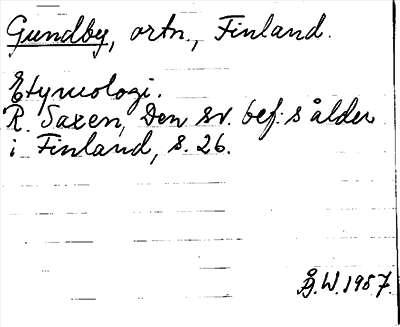 Gundby, ortn., Finland.
Etymologi.
R. Saxen, Den sv. bef:s ålder
i Finland, s. 26.
Å.W. 1957.